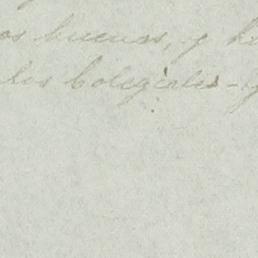 os buenos, y h
les Colegiales-